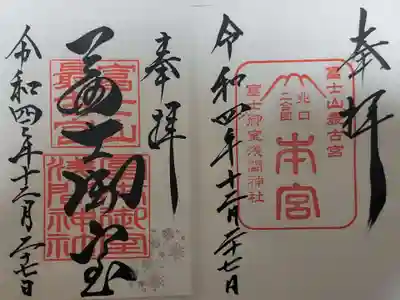 奉拝
冨士山最古宮
北口
二合目
本宮
冨士御室浅間神社
令和四年十二月二十七日
奉拝
冨士山
最古
冨士御室
浅間神社
令和四年十二月二十七日